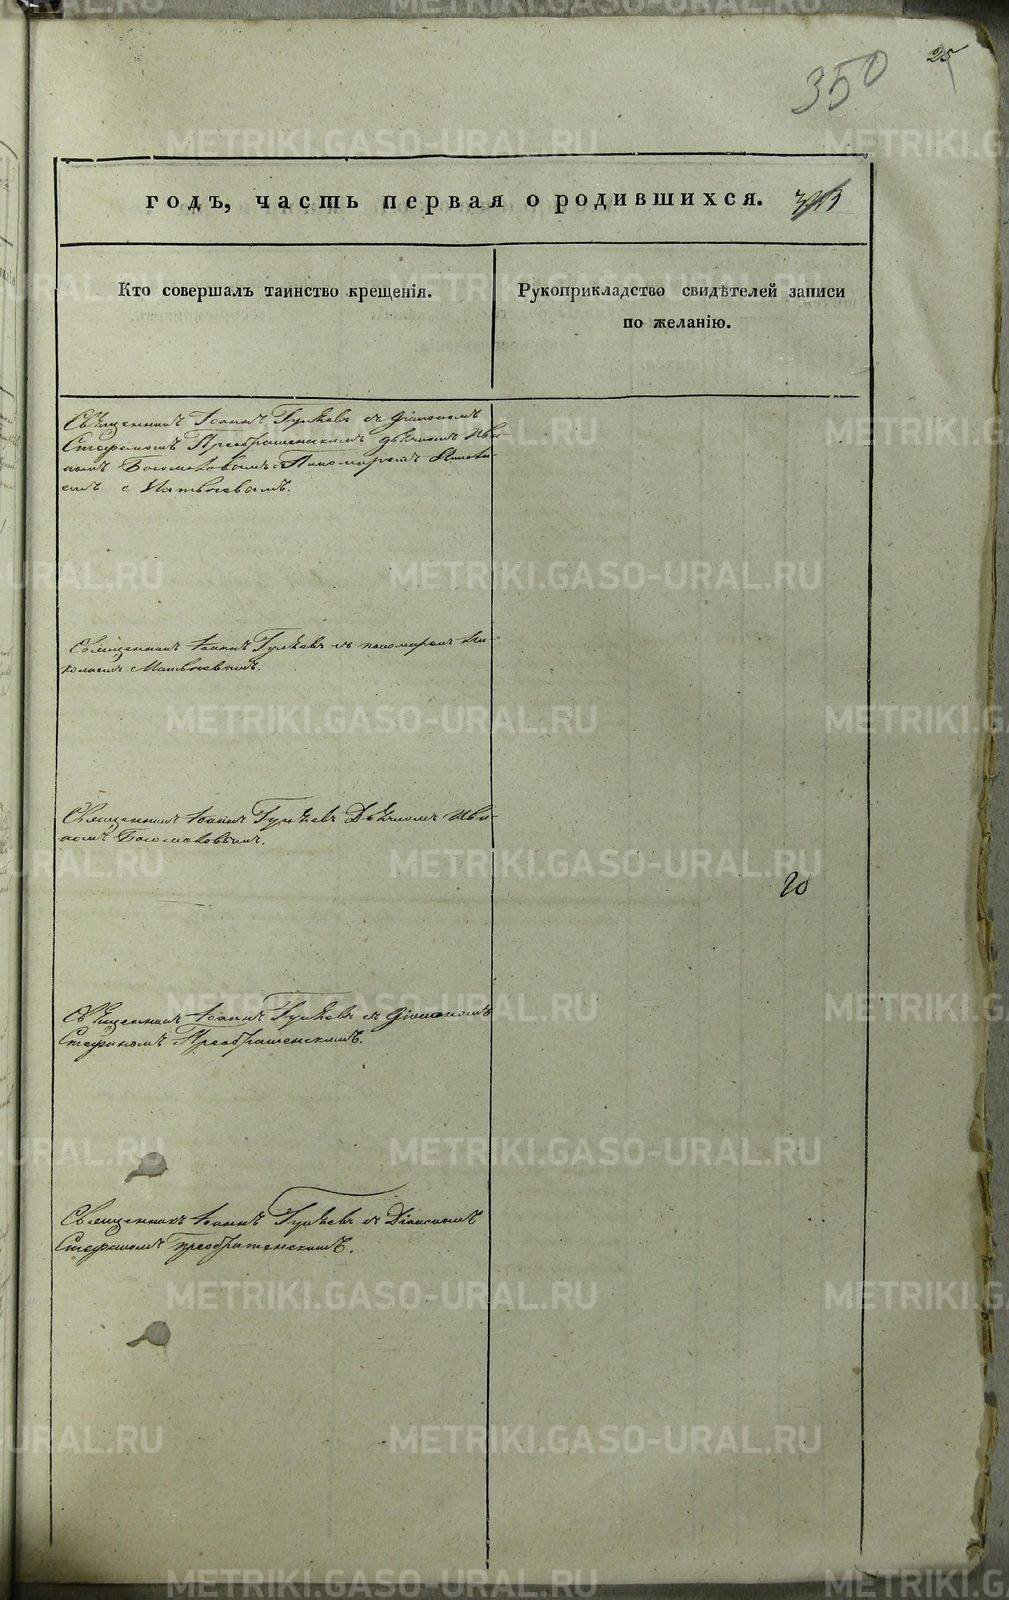 25
350
годъ, часть первая о родившихся. 313
Кто совершалъ таинство крещенія.
Рукоприкладство свидѣтелей записи
по желанію.
Священникъ Іоаннъ Гуляевъ съ Діакономъ
Стефаномъ Преображенскимъ дьячкомъ Ива-
номъ Богомоловымъ и Пономаремъ Никола-
емъ Матвѣевымъ.
Священникъ Іоаннъ Гуляевъ съ пономаремъ Ни-
колаемъ Матвѣевымъ.
Священникъ Іоаннъ Гуляевъ Дьячкомъ Ива-
номъ Богомоловымъ.
20
Священникъ Іоаннъ Гуляевъ съ Діакономъ
Стефаномъ Преображенскимъ.
Священникъ Іоаннъ Гуляевъ съ Діакономъ
Стефаномъ Преображенскимъ.
METRIKI.GASO-URAL.RU